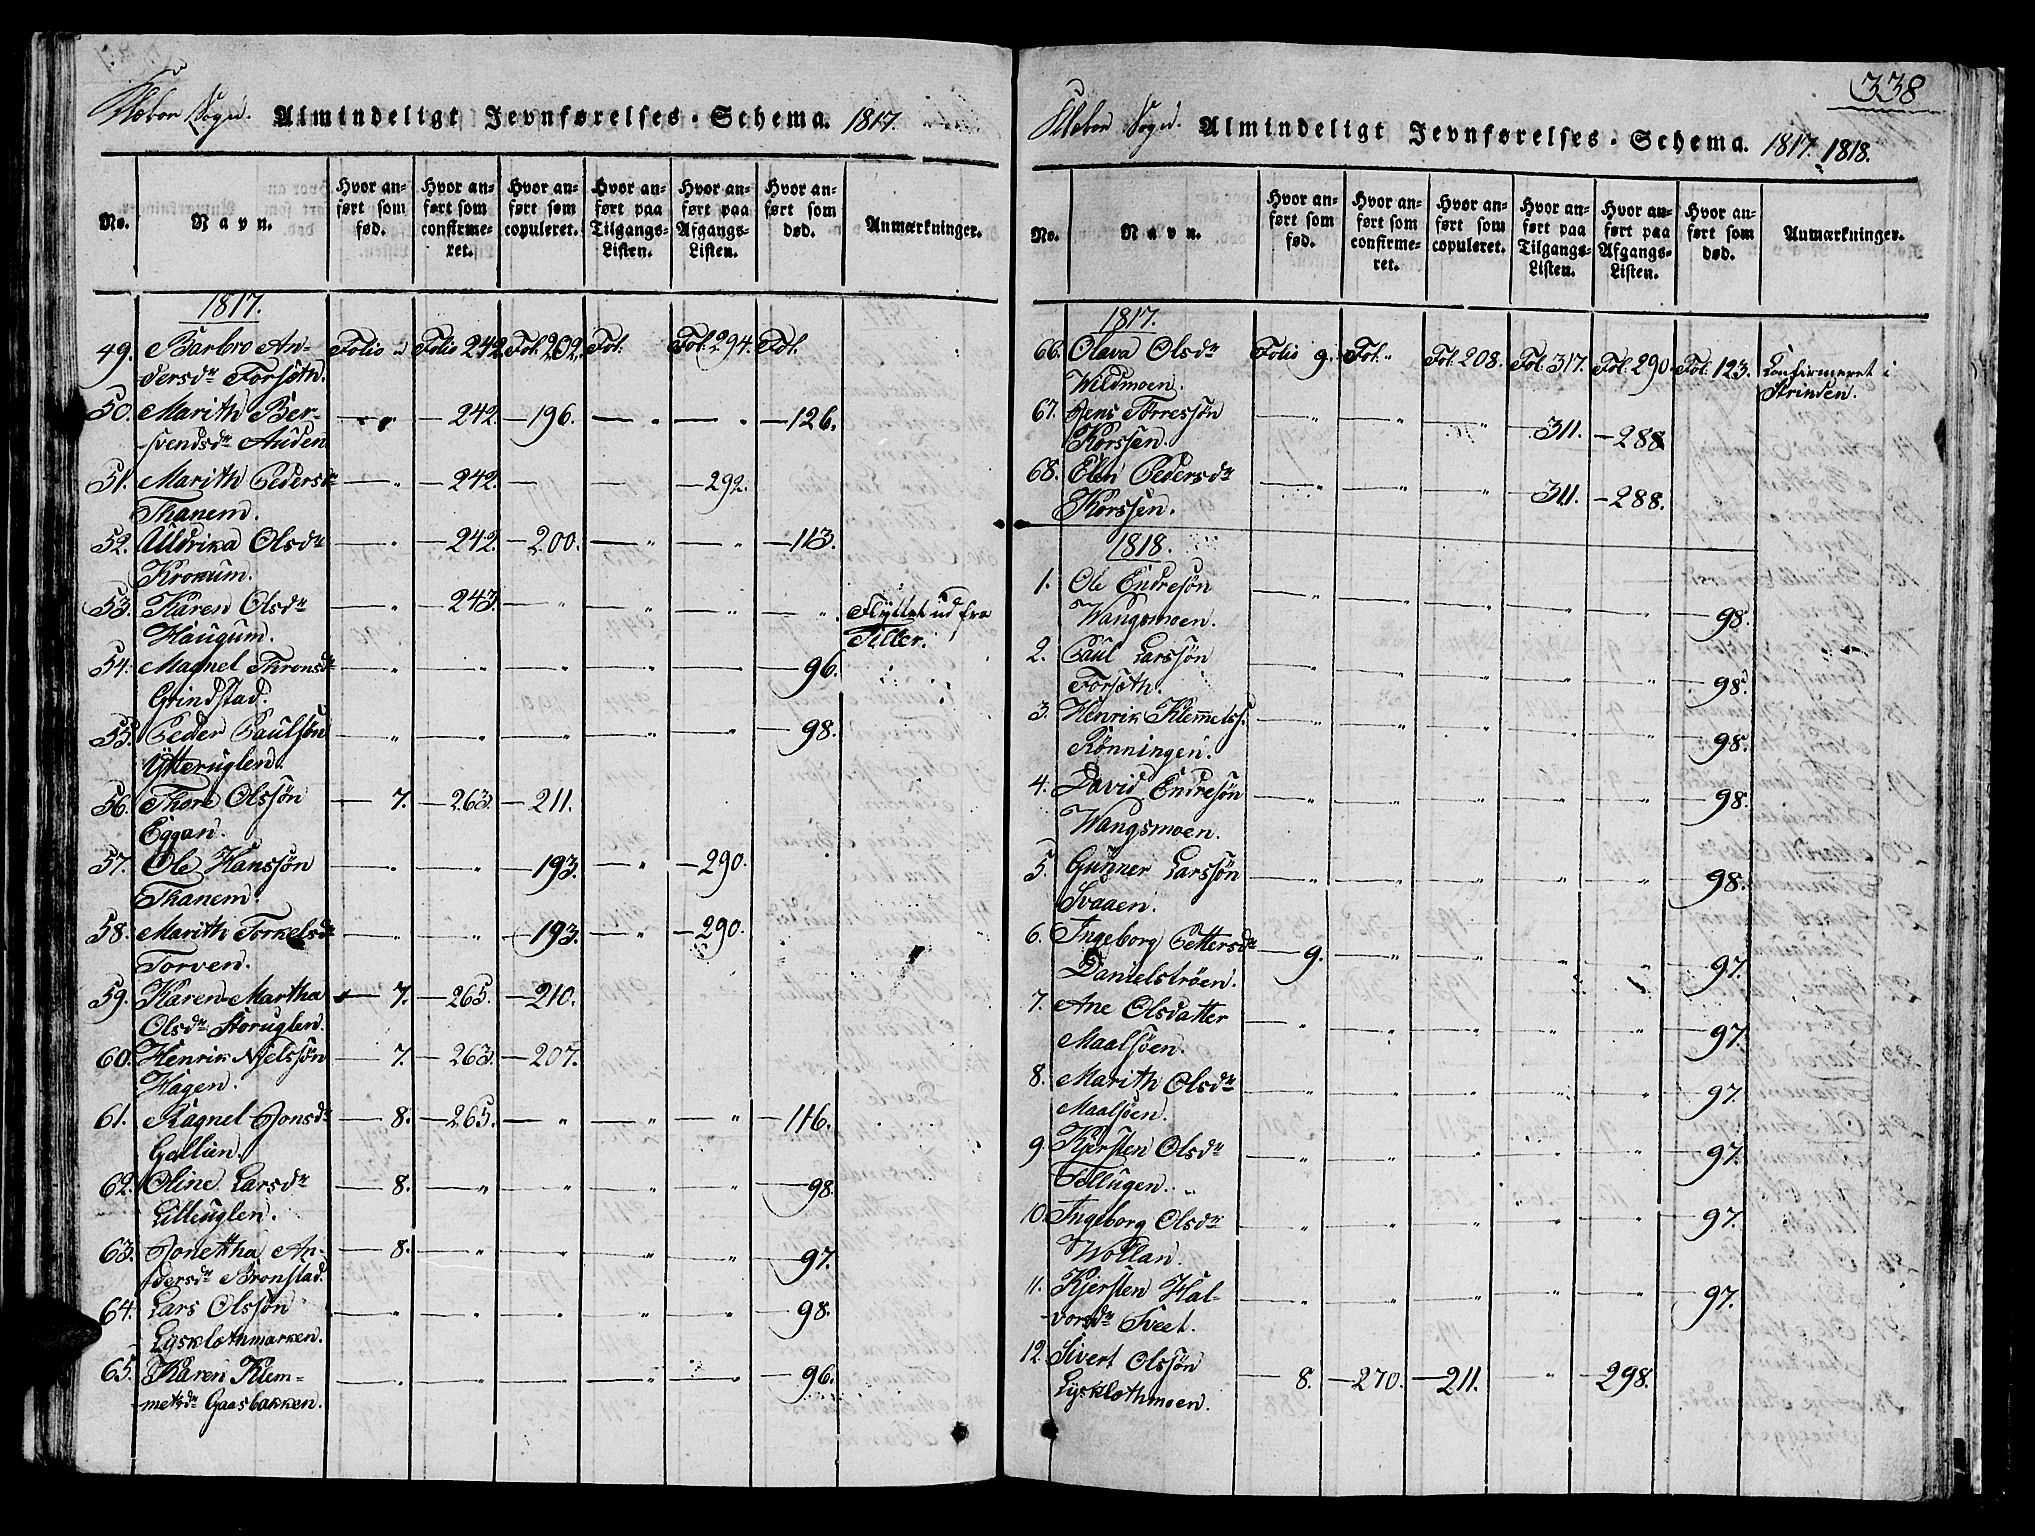 Klæboe Sogn. Almindeligt Jevnførelses-Schema. 1817.
No. Navn. Hvor anført som fød. Hvor anført som confirmeret. Hvor anført som copuleret. Hvor anført paa Tilgangs-Listen. Hvor anført paa Afgangs-Listen. Hvor anført som død. Anmærkninger.
1817.
49. Barbro An- Folio " Folio 242. Fol. 202. Fol. Fol. 294. Fol.
dersdr Forsæth.
50. Marith Ber- — " — 242. — 196. — " — " — 126.
svendsdr Auden
51. Marith Pedersdr — " — 242. — — " — 292.
Thanem.
52. Uldrika Olsdr — " — 242. — 200. — " — " — 113.
Krokum.
53. Karen Olsdr — " — 243. — " — " — " — " Flyttet ud fra
Haugum. Tiller.
54. Magnel Thronsdr — " — " — " — " — " — 96.
Grindstad.
55. Peder Paulsøn — " — " — " — " — " — 98.
Ytteruglen.
56. Thore Olssøn — 7. — 263. — 211.
Eggan.
57. Ole Hanssøn — " — " — 193. — " — 290.
Thanem.
58. Marith Torkelsdr — " — " — 193. — " — 290.
Torven.
59. Karen Martha — 7. — 265. — 210.
Olsdr Storuglen.
60. Henrik Njelssøn — 7. — 263. — 207.
Hagen.
61. Ragnel Jonsdr — 8. — 265. — " — " — " — 116.
Gellien.
62. Oline Larsdr — 8. — " — " — " — " — 98.
Lilleuglen.
63. Jonettha An- — 8. — " — " — " — " — 97.
dersdr Bronstad.
64. Lars Olssøn — " — " — " — " — " — 98.
Lysklothmarken.
65. Karen Klem- — " — " — " — " — " — 96.
metsdr Gaasbakken.
338
Klæboe Sogn. Almindeligt Jevnførelses-Schema. 1817. 1818.
No. Navn. Hvor anført som fød. Hvor anført som confirmeret. Hvor anført som copuleret. Hvor anført paa Tilgangs-Listen. Hvor anført paa Afgangs-Listen. Hvor anført som død. Anmærkninger.
1817.
66. Olava Olsdr Folio 9. Fol. " Fol. 208. Fol. 317. Fol. 290. Fol. 123. Confirmeret i
Wildmoen. Strinden.
67. Jens Torressøn — " — " — " — 311. — 288.
Korssen.
68. Elen Pedersdr — " — " — " — 311. — 288.
Korssen.
1818.
1. Ole Endresøn — " — " — " — " — " — 98.
Wangsmoen.
2. Paul Larssøn — " — " — " — " — " — 98.
Forsæth.
3. Henrik Klemmetss. — " — " — " — " — " — 98.
Rønningen.
4. David Endresøn — " — " — " — " — " — 98.
Wangsmoen.
5. Gunner Larssøn — " — " — " — " — " — 98.
Svaaen.
6. Ingeborg Pettersdr — 9. — " — " — " — " — 97.
Danielstrøen.
7. Ane Olsdatter — " — " — " — " — " — 97.
Maalsøen.
8. Marith Olsdr — " — " — " — " — " — 97.
Maalsøen.
9. Kjersten Olsdr — " — " — " — " — " — 97.
Tellugen.
10. Ingeborg Olsdr — " — " — " — " — " — 97.
Wollan.
11. Kjersten Hal- — " — " — " — " — " — 97.
vorsdr Sveet.
12. Sivert Olssøn — 8. — 270. — 211. — " — 298.
Lysklothmoen.